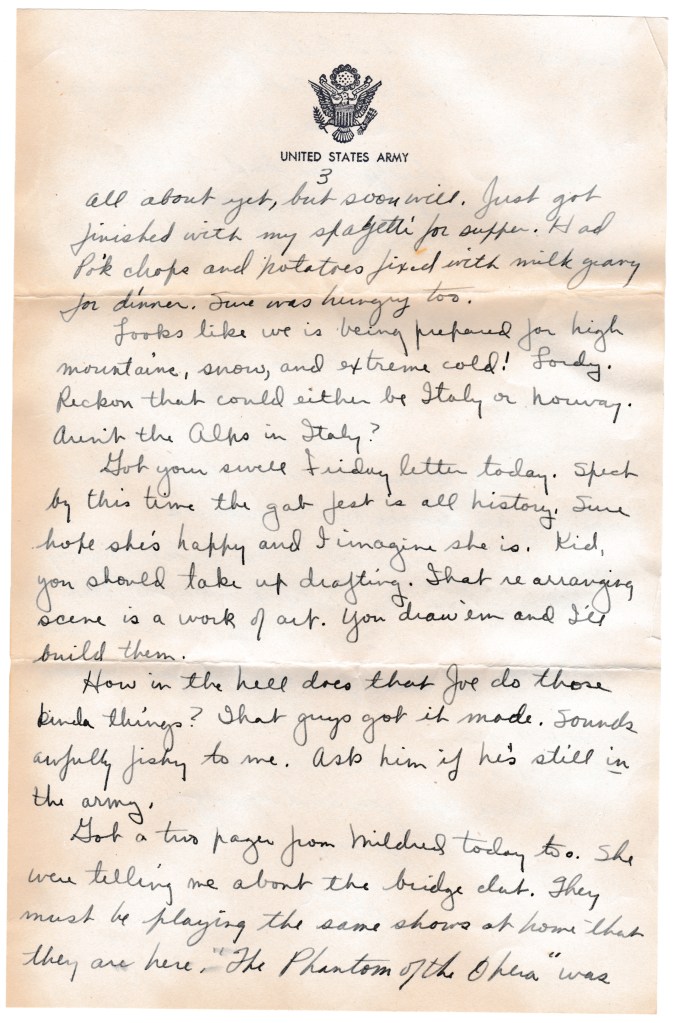 UNITED STATES ARMY
3
all about yet, but soon will. Just got
finished with my spagetti for supper. Had
Po'k chops and potatoes fixed with milk gravy
for dinner. Sure was hungry too.
Looks like we is being prepared for high
mountains, snow, and extreme cold! Lordy.
Reckon that could either be Italy or Norway.
Aren't the Alps in Italy?
Got your swell Friday letter today. Spect
by this time the gab fest is all history. Sure
hope she's happy and I imagine she is. Kid,
you should take up drafting. That re arranging
scene is a work of art. You draw 'em and I'll
build them.
How in the hell does that Joe do those
kinda things? That guys got it made. Sounds
awfully fishy to me. Ask him if he's still in
the army.
Got a two pager from Mildred today too. She
were telling me about the bridge club. They
must be playing the same shows at home that
they are here. "The Phantom of the Opera" was